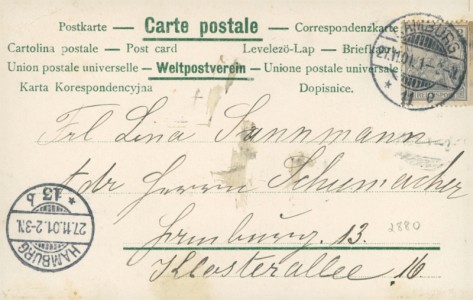 Postkarte — Carte postale — Correspondenzkarte
Cartolina postale — Post card Levelező-Lap — Briefkaart
Union postale universelle — Weltpostverein — Unione postale universale
Karta Korespondencyjna Dopisnice.
HAMBURG
27.11.01.
11
Frl Lina Sannmann
Adr Herrn Schumacher
Hamburg. 13.
Klosterallee 16
2880
HAMBURG
27.11.01. 2-3N.
* 13 b